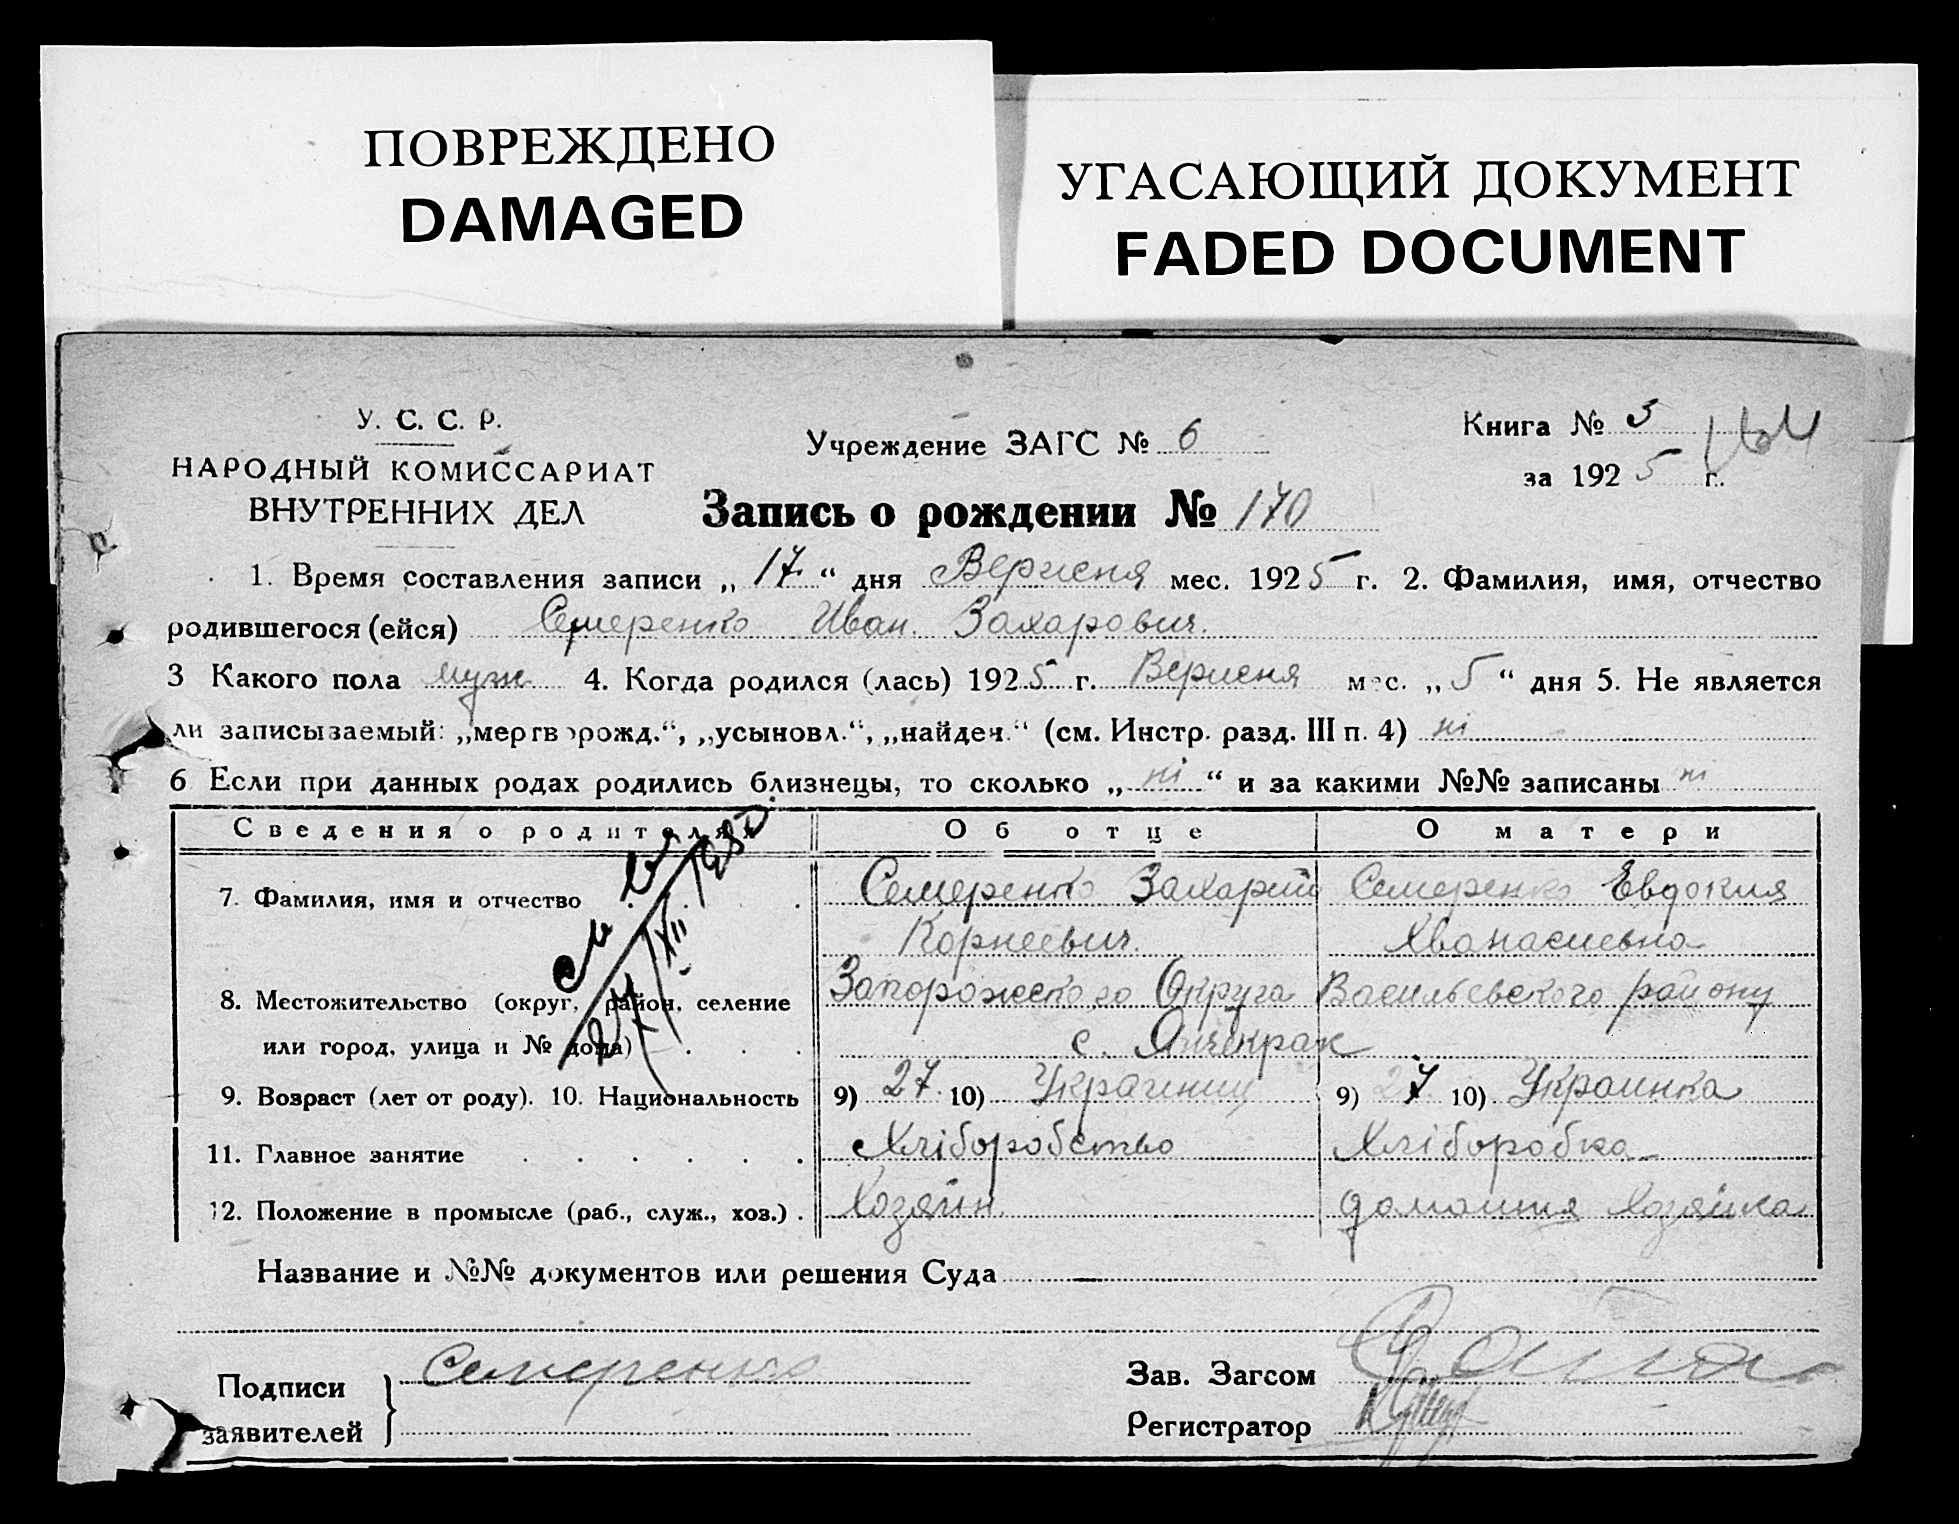 ПОВРЕЖДЕНО
DAMAGED
УГАСАЮЩИЙ ДОКУМЕНТ
FADED DOCUMENT
У. С. С. Р.
НАРОДНЫЙ КОМИССАРИАТ
ВНУТРЕННИХ ДЕЛ
Учреждение ЗАГС № 6
Книга № 3
164
за 1925 г.
Запись о рождении № 170
1. Время составления записи „17“ дня Вересня мес. 1925 г. 2. Фамилия, имя, отчество
родившегося (ейся) Семеренко Иван Захарович.
3 Какого пола муж 4. Когда родился (лась) 1925 г. Вересня мес. „5“ дня 5. Не является
ли записываемый: „мертворожд.“, „усыновл.“, „найден.“ (см. Инстр. разд. III п. 4) ні
6 Если при данных родах родились близнецы, то сколько „ні“ и за какими №№ записаны ні
Сведения о родителях Об отце О матери
7. Фамилия, имя и отчество Семеренко Захарий Семеренко Евдокия
Корнеевич. Хванасиевна
8. Местожительство (округ, район, селение Запорожского Округа Васильевского району
или город, улица и № дома) с. Янчекрак
9. Возраст (лет от роду). 10. Национальность 9) 27 10) Украинец 9) 27 10) Украинка
11. Главное занятие Хліборобство Хліборобка
12. Положение в промысле (раб., служ., хоз.) Хозяин домашня Хозяйка
27/XII
Название и №№ документов или решения Суда —
Подписи Семеренко Зав. Загсом
заявителей Регистратор